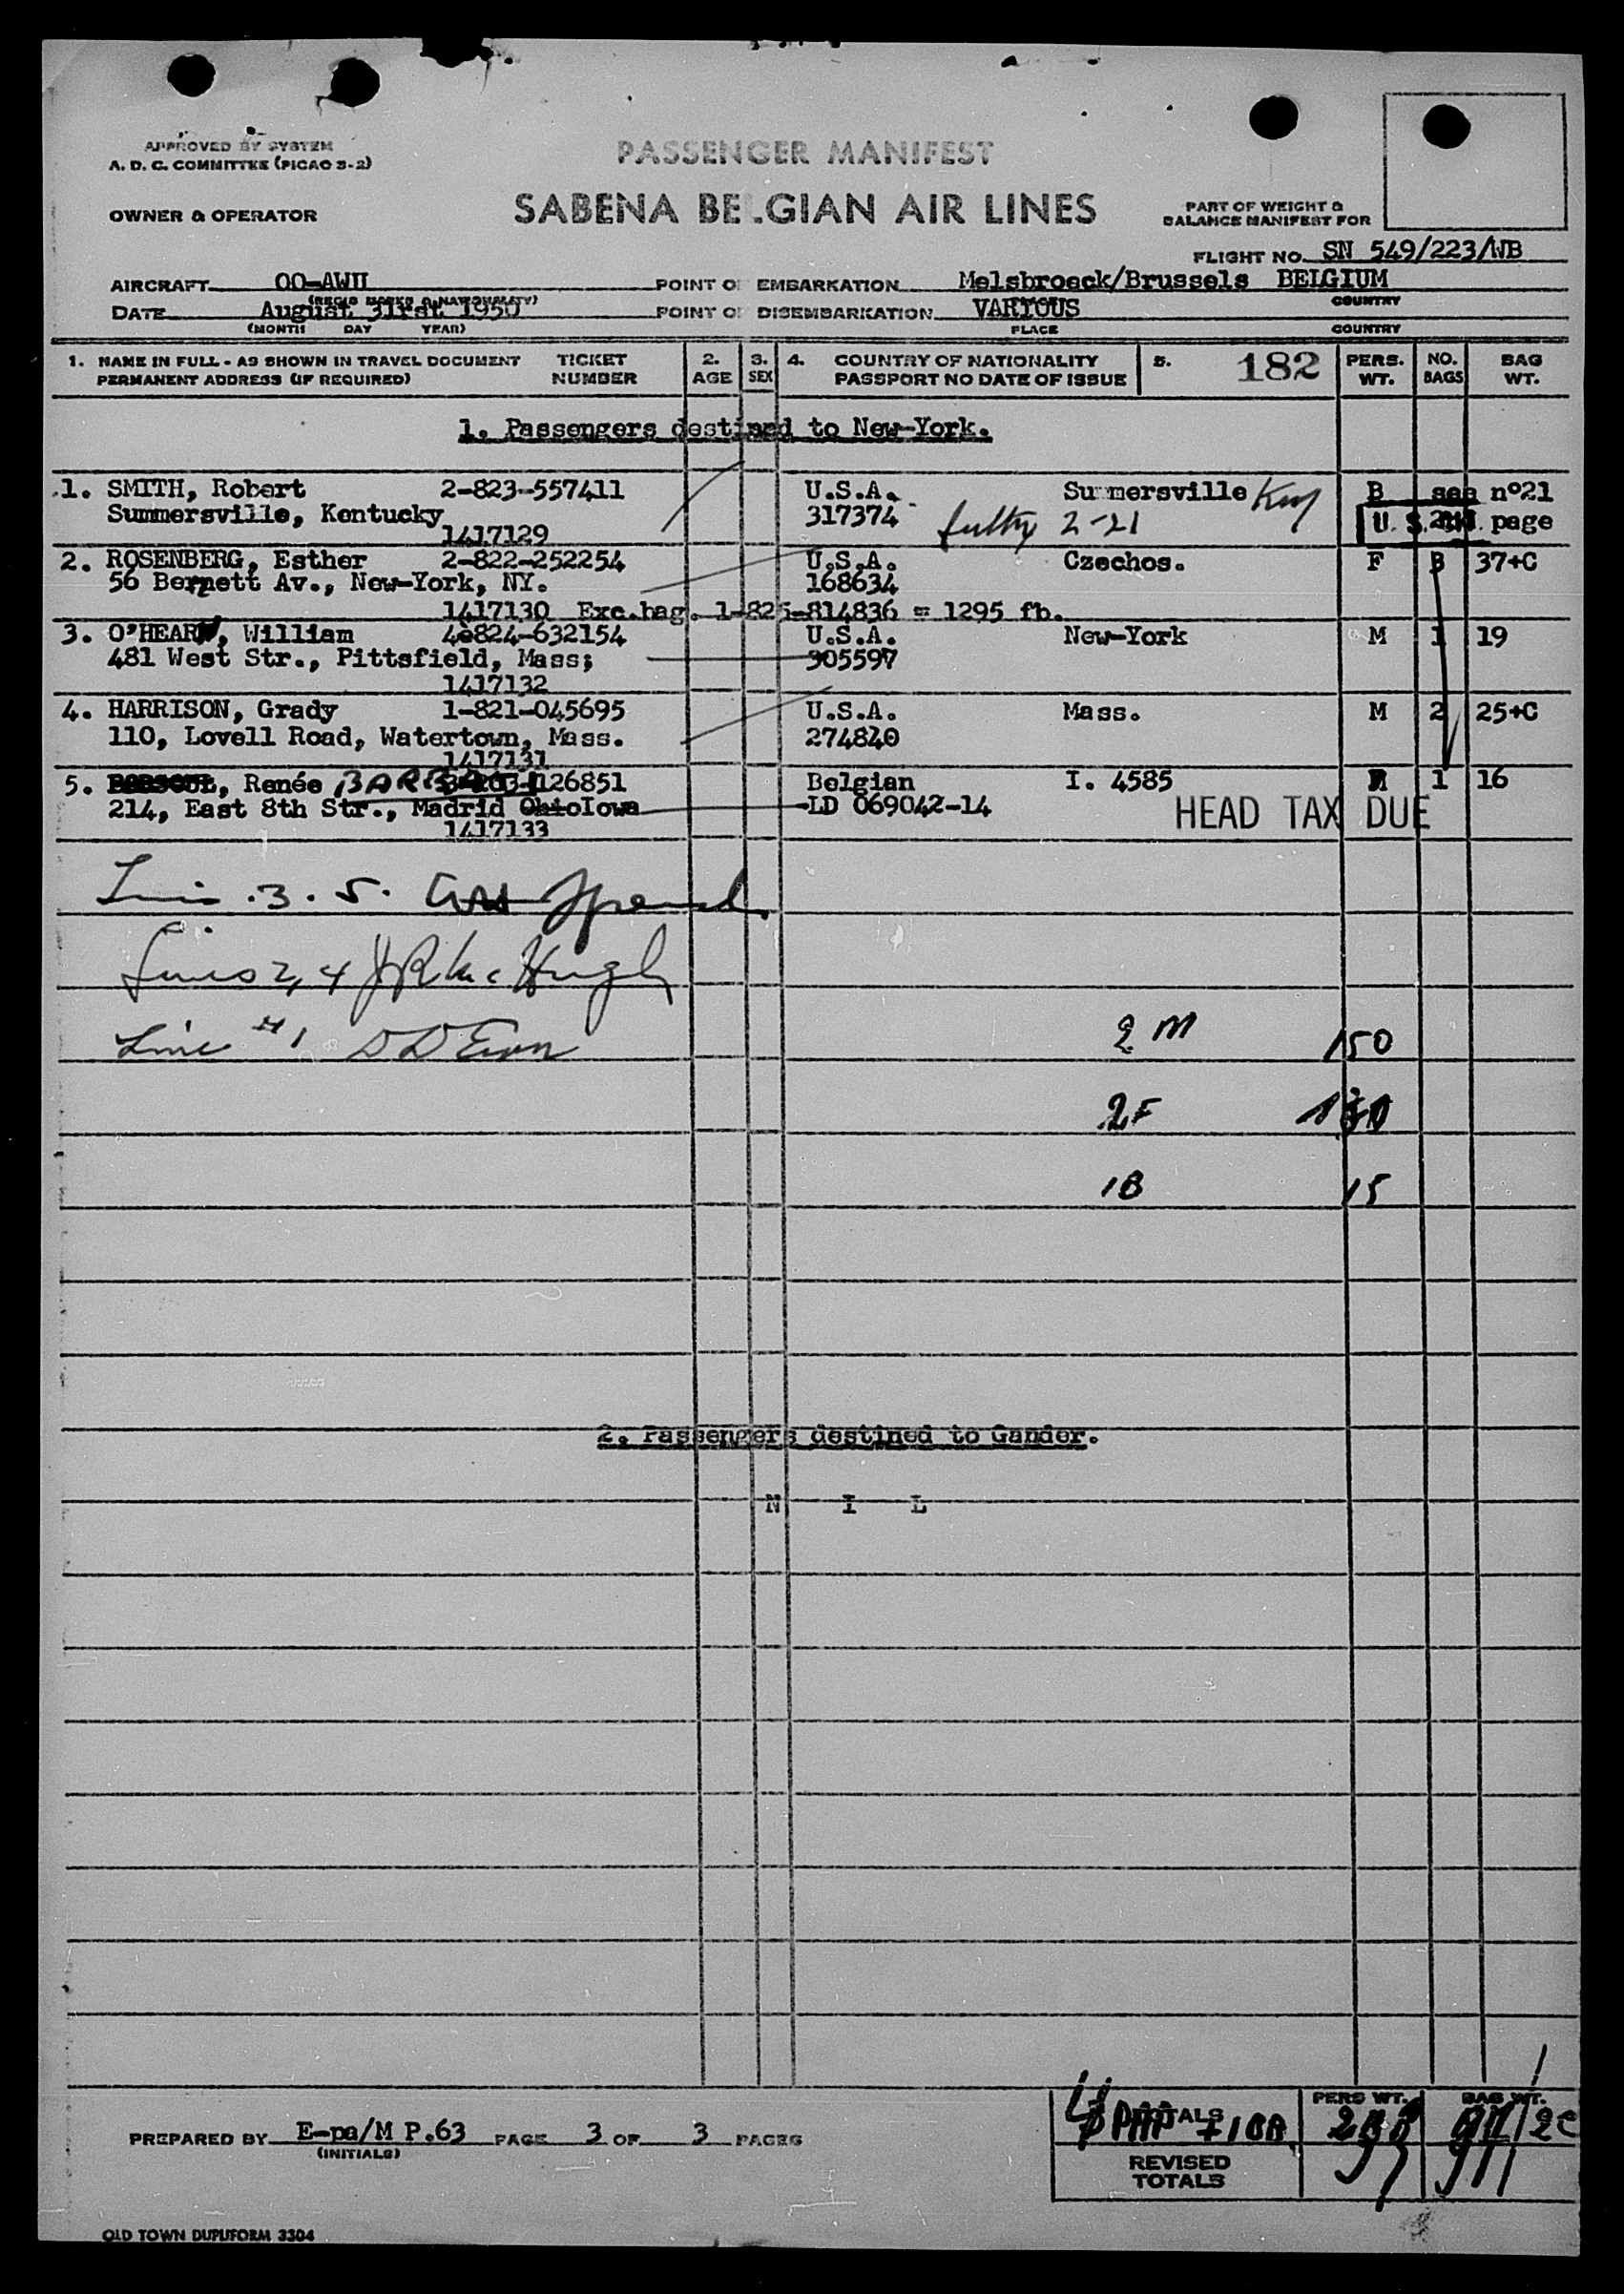 APPROVED BY SYSTEM
A. D. C. COMMITTEE (PICAO S-2)
PASSENGER MANIFEST
SABENA BELGIAN AIR LINES
OWNER & OPERATOR
PART OF WEIGHT &
BALANCE MANIFEST FOR
FLIGHT NO. SN 549/223/WB
AIRCRAFT OO-AWU POINT OF EMBARKATION Melsbroeck/Brussels BELGIUM
(REGIS MARKS & NATIONALITY) COUNTRY
DATE August 31rst 1950 POINT OF DISEMBARKATION VARIOUS
(MONTH DAY YEAR) PLACE COUNTRY
1. NAME IN FULL - AS SHOWN IN TRAVEL DOCUMENT TICKET 2. 3. 4. COUNTRY OF NATIONALITY 5. 182 PERS. NO. BAG
PERMANENT ADDRESS (IF REQUIRED) NUMBER AGE SEX PASSPORT NO DATE OF ISSUE WT. BAGS WT.
1. Passengers destined to New-York.
1. SMITH, Robert 2-823-557411 U.S.A. Summersville Ky B see n°21
Summersville, Kentucky 317374 2-21 page
1417129
2. ROSENBERG, Esther 2-822-252254 U.S.A. Czechos. F 3 37+C
56 Bennett Av., New-York, NY. 168634
1417130 Exc.bag. 1-825-814836 = 1295 fb.
3. O'HEARN, William 4e824-632154 U.S.A. New-York M 1 19
481 West Str., Pittsfield, Mass; 305597
1417132
4. HARRISON, Grady 1-821-045695 U.S.A. Mass. M 2 25+C
110, Lovell Road, Watertown, Mass. 274840
1417131
5. Renée 126851 Belgian I. 4585 1 16
214, East 8th Str., Madrid Iowa LD 069042-14 HEAD TAX DUE
1417133
3. 5.
Lines 2, 4
Line #1
2 M 150
2F
1B 15
2. Passengers destined to Gander.
N I L
PERS WT. BAG WT.
TOTALS
PREPARED BY E-pa/M P.63 PAGE 3 OF 3 PAGES
(INITIALS)
REVISED
TOTALS
OLD TOWN DUPLIFORM 3304